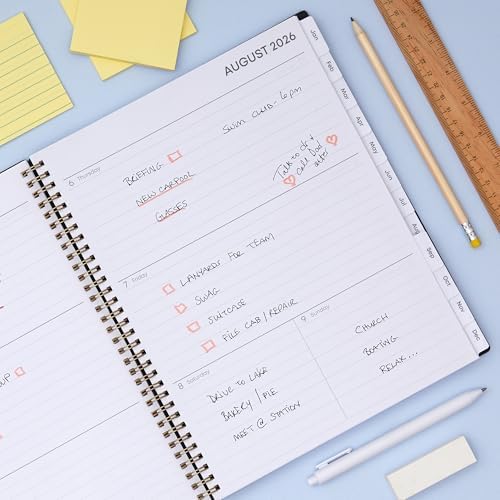 AUGUST 2026
6 Thursday
SWIM CLUB - 6pm
BRIEFING
NEW CARPOOL
GLASSES
Talk to ck &
call Dad
after
7 Friday
LANYARDS FOR TEAM
SWAG
SUITCASE
FILE CAB / REPAIR
8 Saturday
DRIVE TO LAKE
BAKERY / PIE
MEET @ STATION
9 Sunday
CHURCH
BOATING
RELAX...
Jan
Feb
Mar
Apr
May
Jun
Jul
Aug
Sep
Oct
Nov
Dec